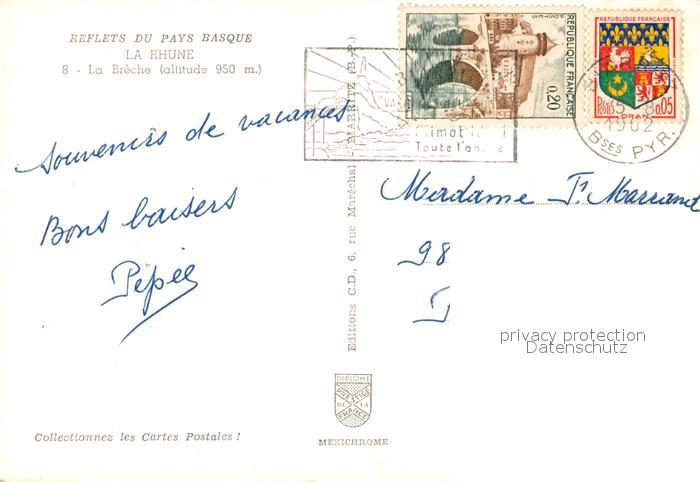 REFLETS DU PAYS BASQUE
LA RHUNE
8 - La Brèche (altitude 950 m.)
Souvenirs de vacances
Bons baisers
Pépée
Collectionnez les Cartes Postales !
Editions C.D., 6, rue Maréchal - BIARRITZ (B.-P.)
DIPLOME
PRESTIGE
DE LA
FRANCE
MEXICHROME
Toute l'année
POSTES
REPUBLIQUE FRANÇAISE
0,20
REPUBLIQUE FRANÇAISE
POSTES
0,05
ORAN
1962
Bses PYR.
Madame
98
privacy protection
Datenschutz